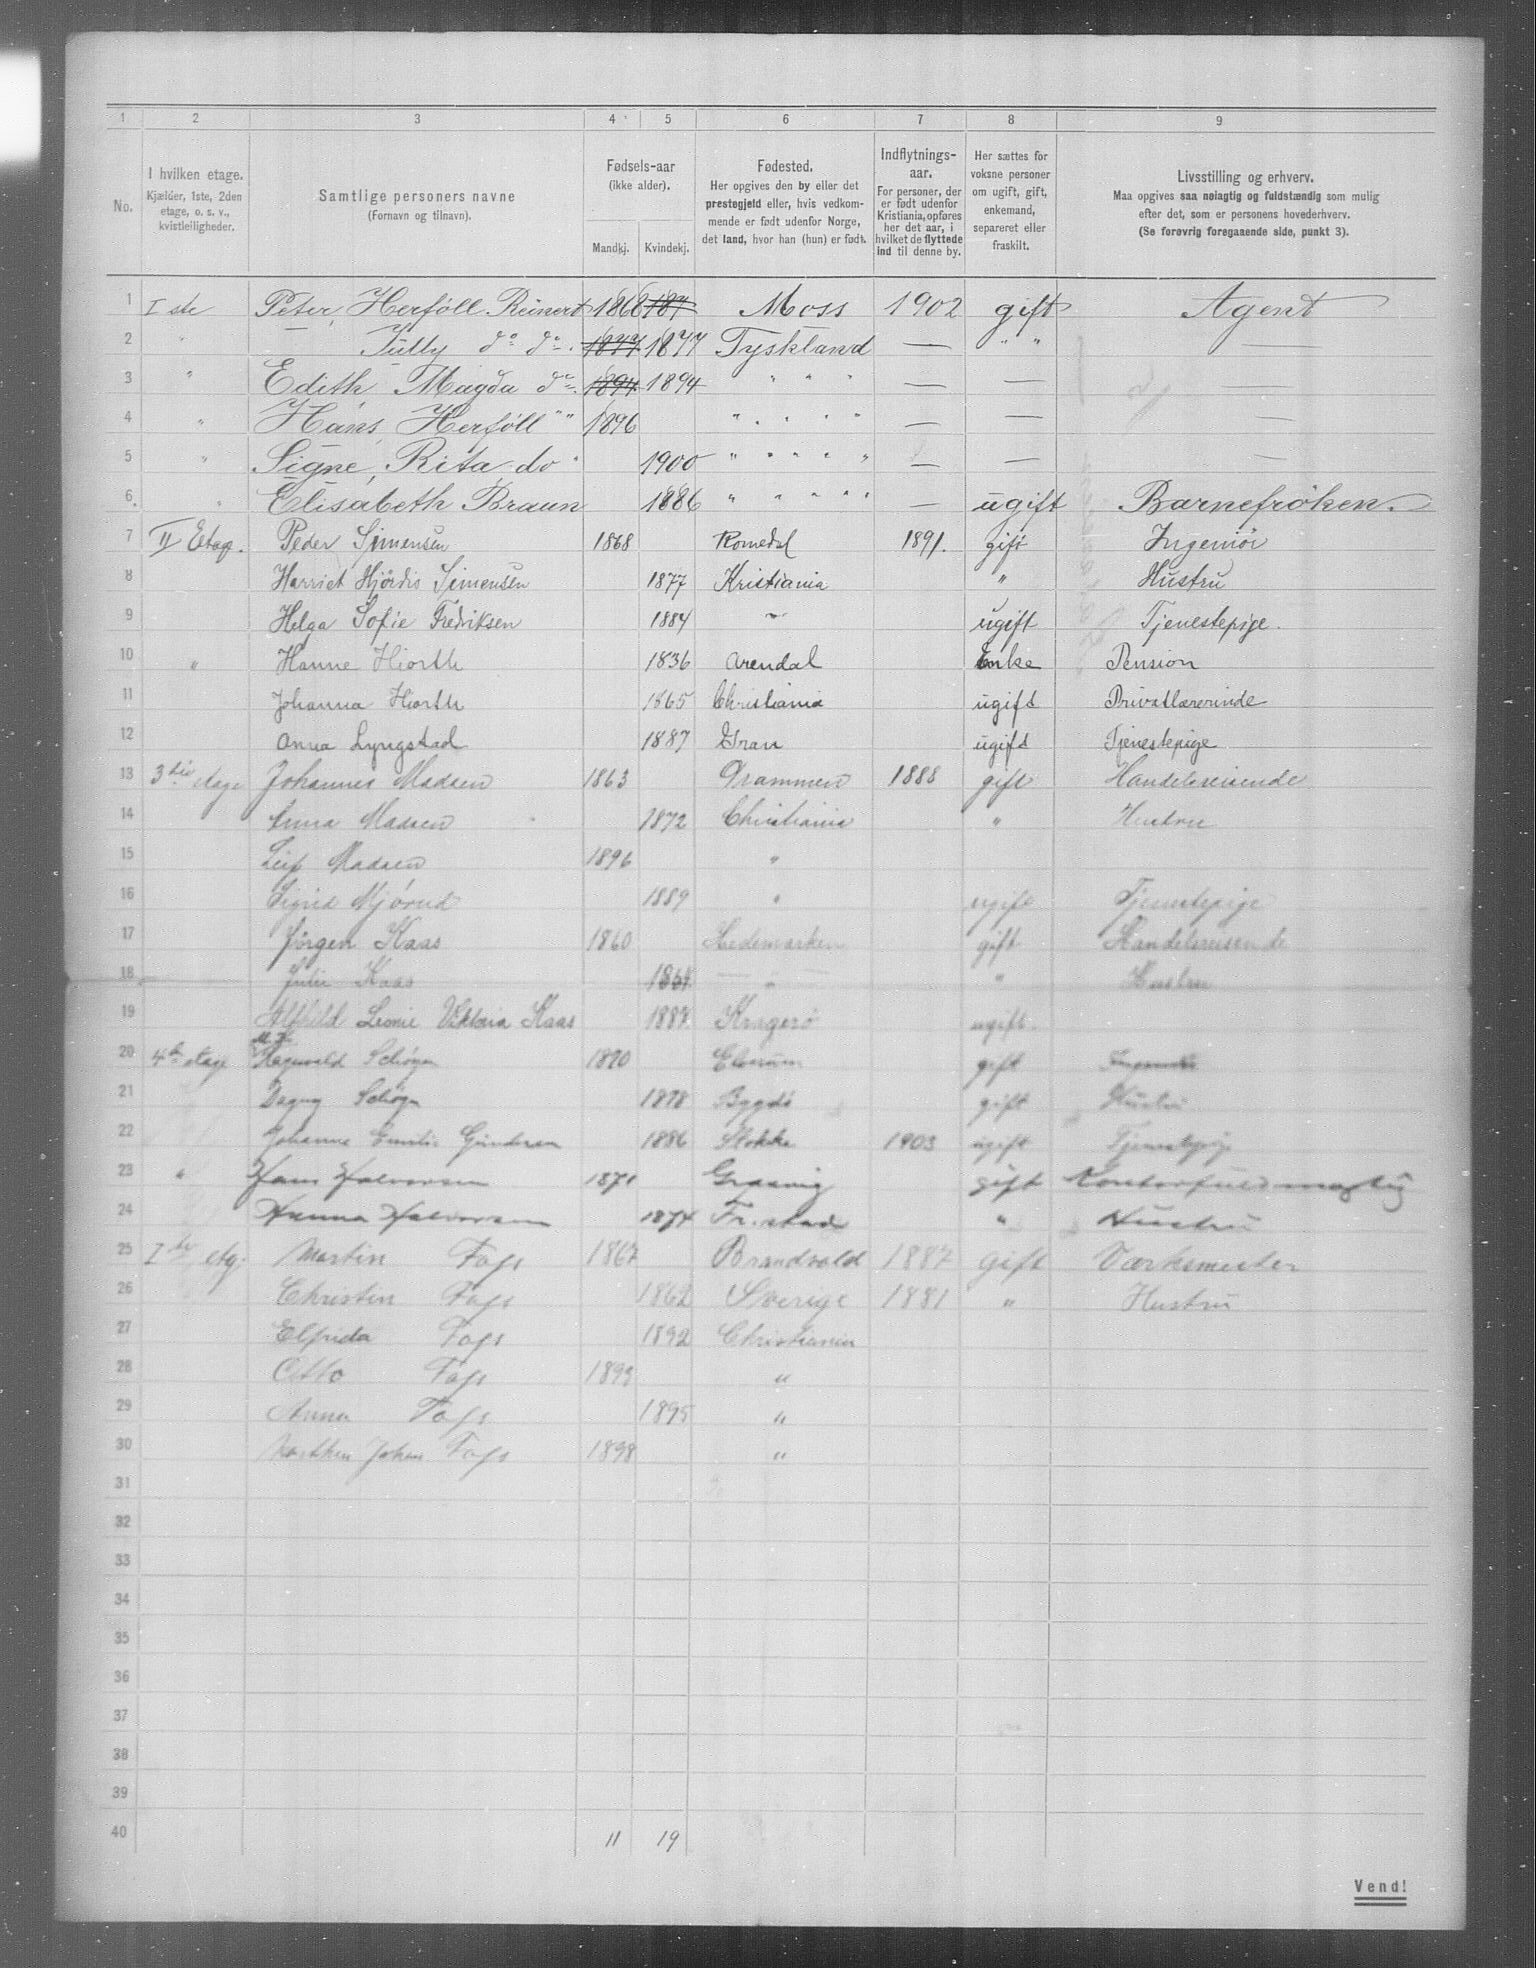 1 2 3 4 5 6 7 8 9
No.
I hvilken etage.
Kjælder, 1ste, 2den
etage, o. s. v.,
kvistleiligheder.
Samtlige personers navne
(Fornavn og tilnavn).
Fødsels-aar
(ikke alder).
Mandkj. Kvindekj.
Fødested.
Her opgives den by eller det
prestegjeld eller, hvis vedkom-
mende er født udenfor Norge,
det land, hvor han (hun) er født.
Indflytnings-
aar.
For personer, der
er født udenfor
Kristiania, opføres
her det aar, i
hvilket de flyttede
ind til denne by.
Her sættes for
voksne personer
om ugift, gift,
enkemand,
separeret eller
fraskilt.
Livsstilling og erhverv.
Maa opgives saa nøiagtig og fuldstændig som mulig
efter det, som er personens hovederhverv.
(Se forøvrig foregaaende side, punkt 3).
1 I ste Peter Herføll Reinert 1868 187 Moss 1902 gift Agent
2 " — Tully do do. 1877 1877 Tyskland — " " —
3 " Edith, Magda do. 1894 1894 " " " — — —
4 " Hans, Herføll " " 1896 " " " " — — —
5 " Signe, Rita do " 1900 " " " " " — — —
6. " Elisabeth Braun 1886 " " " " " — ugift Barnefrøken.
7 II Etage. Peder Simensen 1868 Romedal 1891. gift Ingeniør
8 Harriet Hjördis Simensen 1877 Kristiania " Hustru
9 Helga Sofie Fredriksen 1884 " ugift Tjenestepige.
10 " Hanne Hiorth 1836 Arendal Enke Pension
11 Johanna Hiorth 1865 Christiania ugift Privatlærerinde
12 Anna Lyngstad 1887 Gran ugift Tjenestepige
13 3die etage Johannes Madsen 1863 Drammen 1888 gift Handelsreisende
14 Anna Madsen 1872 Christiania " Hustru
15 Leif Madsen 1896 "
16 Sigrid Mjørud 1889 " ugift Tjenestepige
17 Jørgen Kaas 1860 Hedemarken gift Handelsreisende
18 Julie Kaas 1864 — " — " Hustru
19 Alfhild Leonie Viktoria Kaas 1887 Kragerø ugift.
20 4de etage Ragnvald Schøyen 1870 Elverum gift
21 Dagny Schøyen 1878 Bygdø gift Hustru
22 Johanne Emilie Gundersen 1886 Stokke 1903 ugift Tjenestepige
23 " Hans Halvorsen 1871 gift Kontorfuldmægtig
24 Hanna Halvorsen 1874 Fr.stad " Hustru
25 I ste etg. Martin Foss 1867 Brandvold 1887 gift Værksmester
26 Christin Foss 1862 Sverige 1881 " Hustru
27 Elfrida Foss 1892 Christiania
28 Otto Foss 1893 "
29 Anna Foss 1895 "
30 Johan Foss 1898 "
31
32
33
34
35
36
37
38
39
40 11 19
Vend!